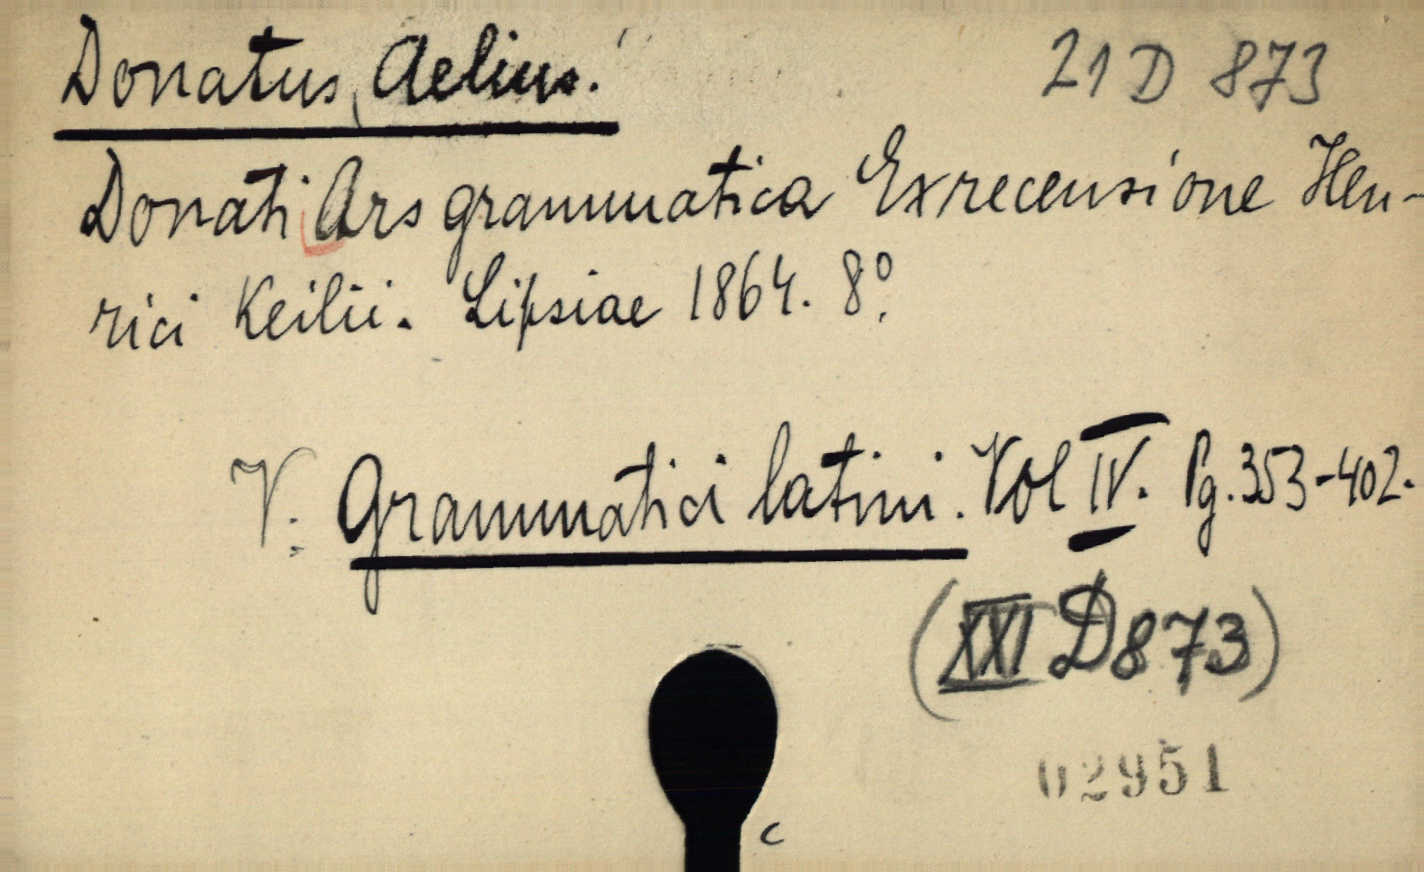 Donatus, Aelius.
21 D 873
Donati Ars grammatica Ex recensione Hen-
rici Keilii. Lipsiae 1864. 8º.
V. Grammatici latini. Vol IV. Pg. 353-402.
(XXI D 873)
02951
c